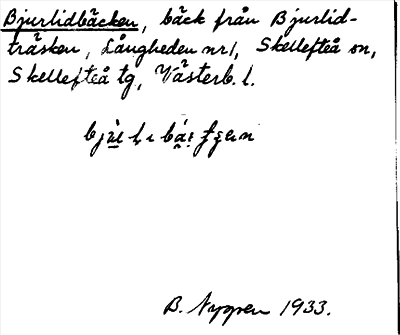 Bjurlidbäcken, bäck från Bjurlid-
träsken, Långheden nr 1, Skellefteå sn,
Skellefteå tg, Västerb. l.
B. Nygren 1933.